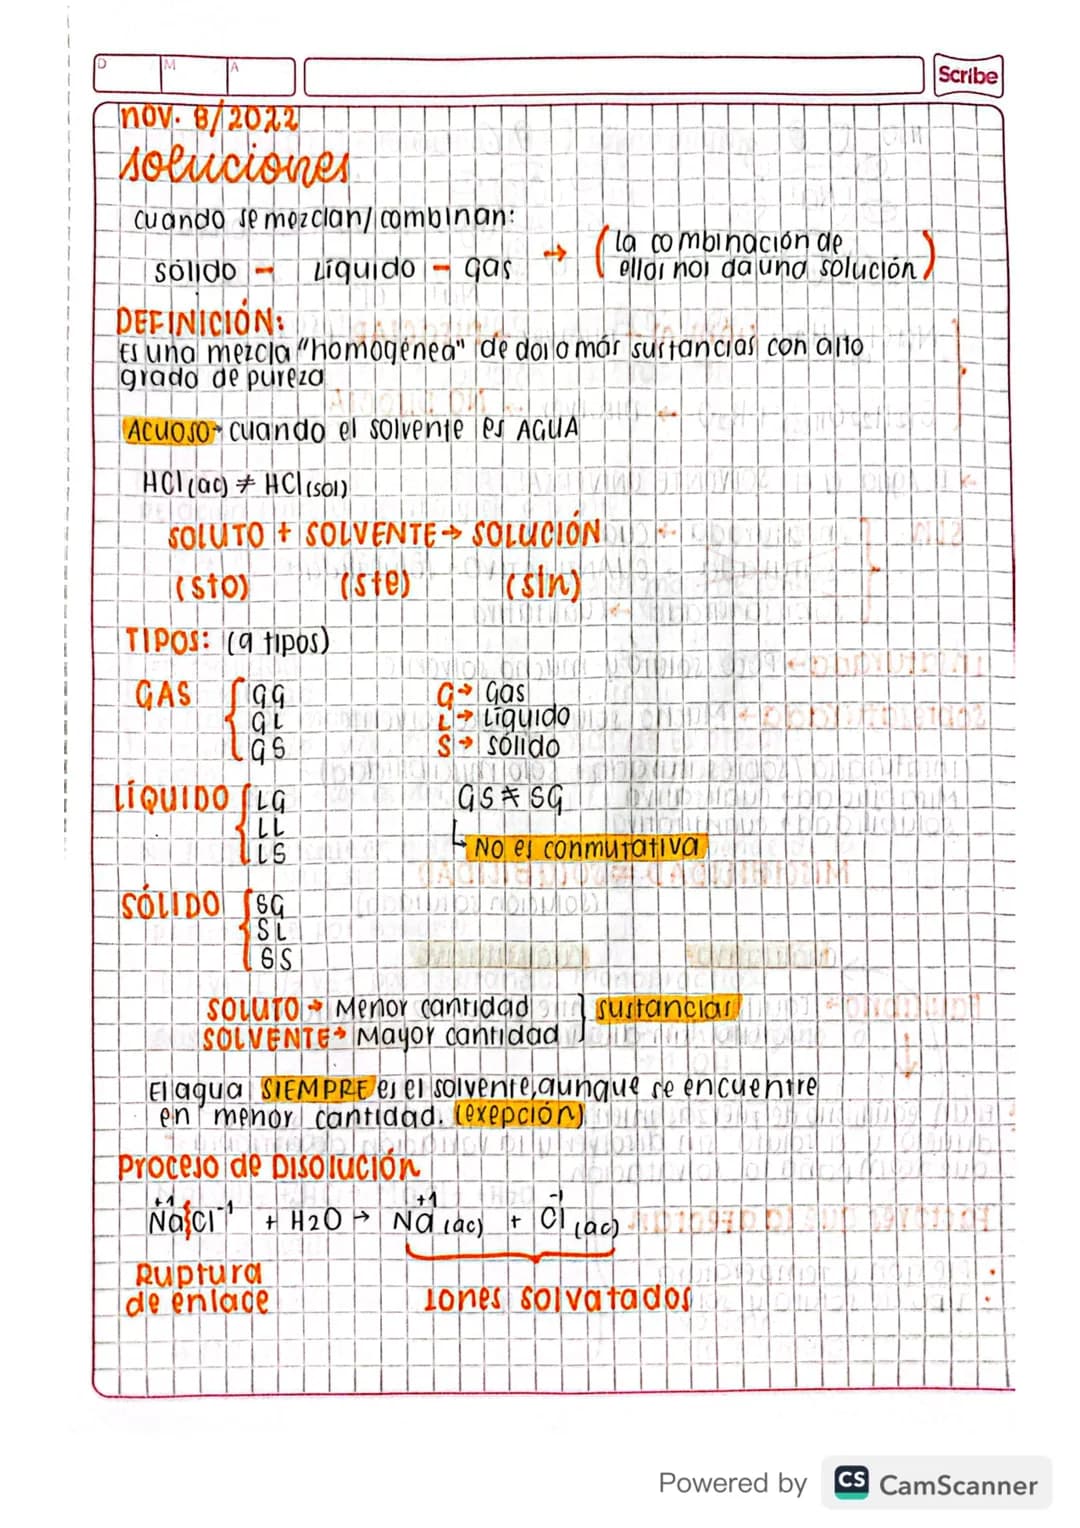 D M A
Scribe
nov. 8/2022
soluciones
cuando se mezclan/combinan:
sólido - Líquido - gas → (la combinación de
ellos nos da una solución)
DEFINICIÓN:
Es una mezcla "homogénea" de dos o más sustancias con alto
grado de pureza
ACUOSO→ cuando el solvente es AGUA
HCl(ac) ≠ HCl(sol)
SOLUTO + SOLVENTE → SOLUCIÓN
(sto) (ste) (sln)
TIPOS: (9 tipos)
GAS { GG
GL
GS
G→ Gas
L→ Líquido
S→ sólido
LÍQUIDO { LG
LL
LS
GS ≠ SG
No es conmutativa
SÓLIDO { SG
SL
SS
SOLUTO → Menor cantidad
SOLVENTE→ Mayor cantidad } sustancias
El agua SIEMPRE es el solvente, aunque se encuentre
en menor cantidad. (exepción)
Proceso de DISOLUCIÓN
Na⁺¹Cl⁻¹ + H2O → Na⁺¹(ac) + Cl⁻¹(ac)
Ruptura
de enlace
Iones solvatados
Powered by CS CamScanner